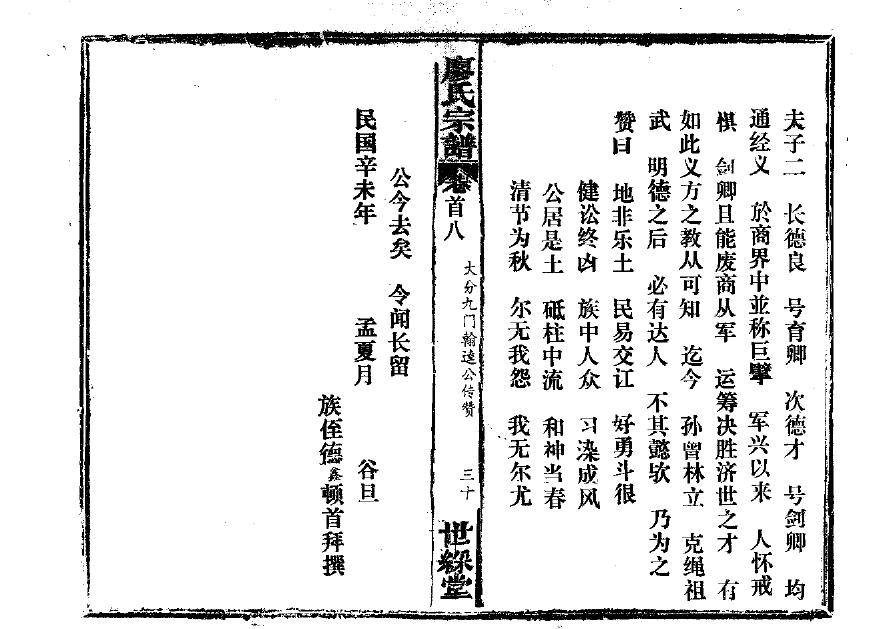 夫子二 长德良 号育卿 次德才 号剑卿 均
通经义 於商界中並称巨擘 军兴以来 人怀戒
惧 剑卿且能废商从军 运筹决胜济世之才 有
如此义方之教从可知 迄今 孙曾林立 克绳祖
武 明德之后 必有达人 不其懿欤 乃为之
赞曰 地非乐土 民易交讧 好勇斗很
健讼终凶 族中人众 习染成风
公居是土 砥柱中流 和神当春
清节为秋 尔无我怨 我无尔尤
廖氏宗譜 卷首八 大分九门翰逵公传赞 三十 世綵堂
公今去矣 令闻长留
民国辛未年 孟夏月 谷旦
族侄德鑫顿首拜撰